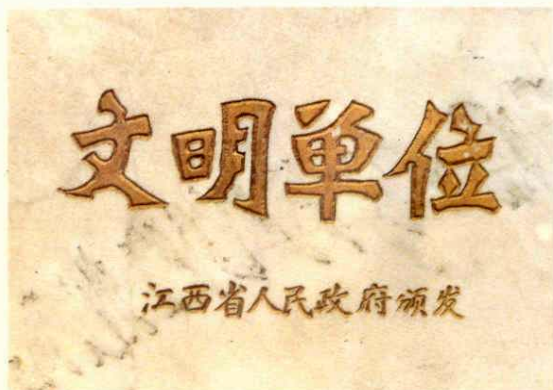 文明单位
江西省人民政府颁发